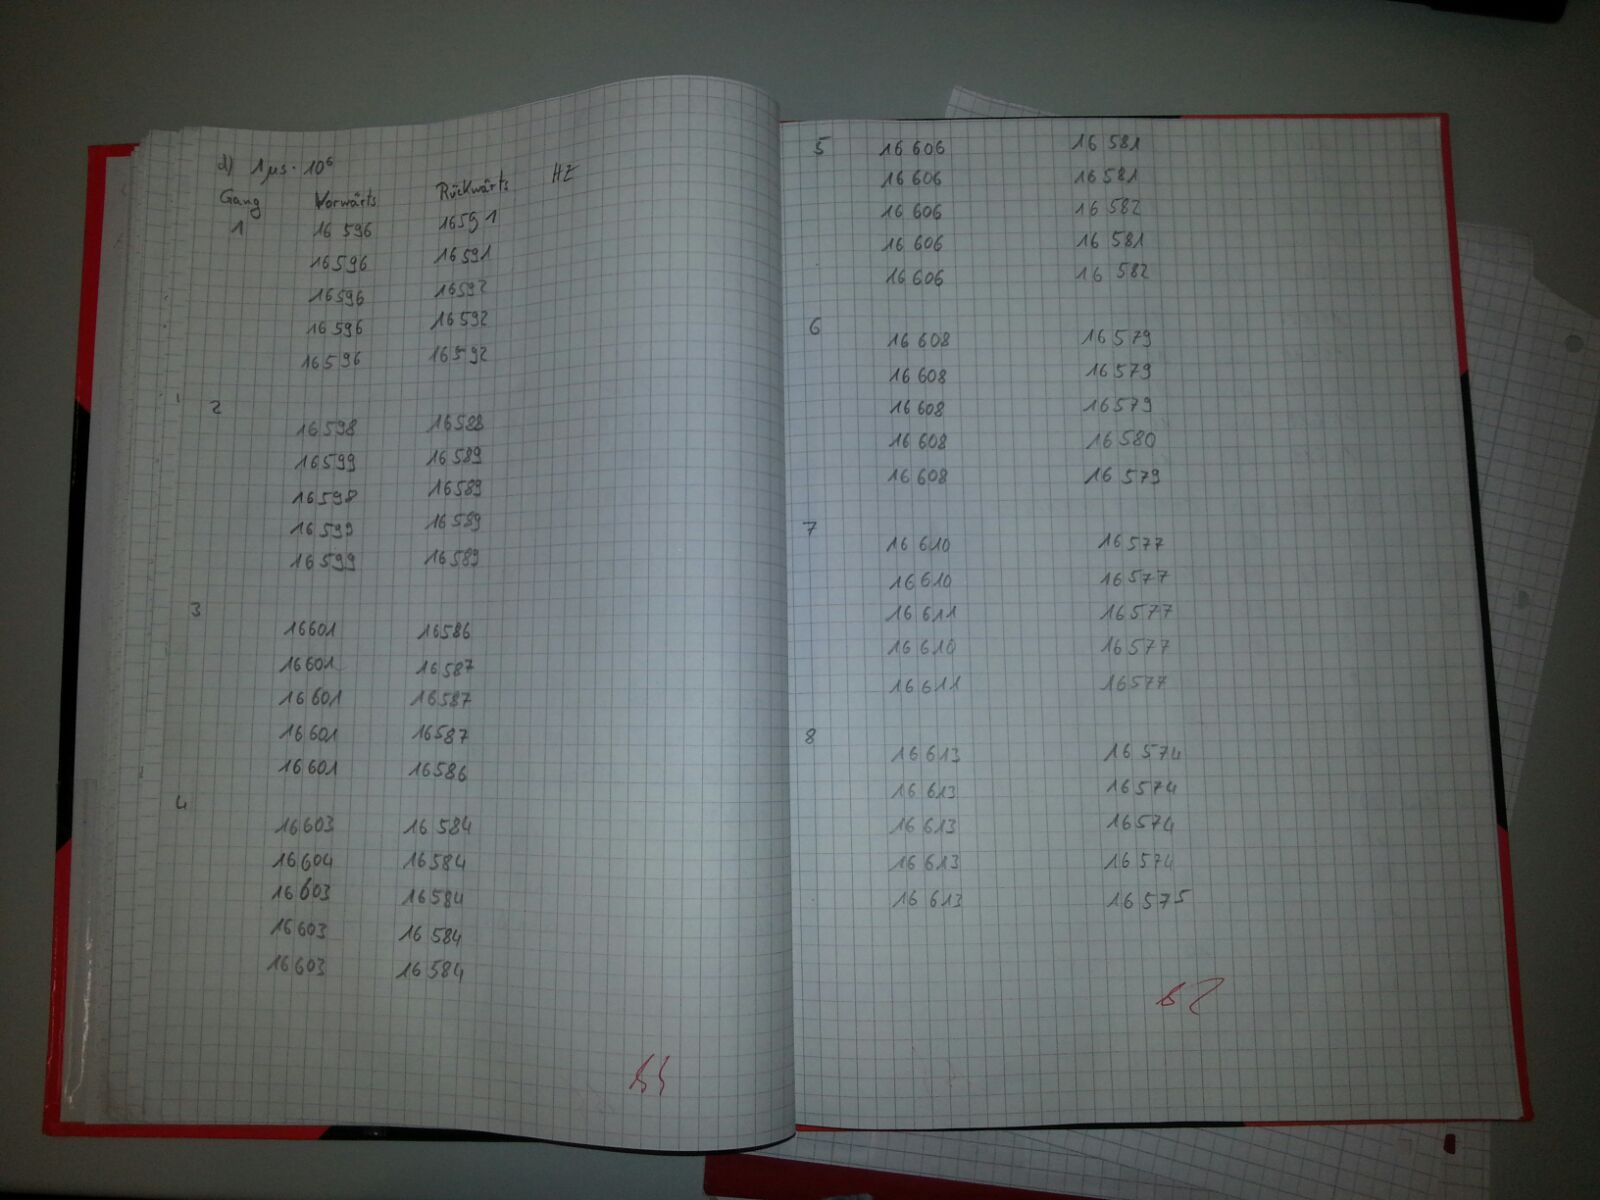 d) 1μs · 10⁶
Gang Vorwärts Rückwärts Hz
1 16 596 16591
16596 16591
16596 16592
16 596 16592
16596 16592
2
16598 16588
16599 16589
16598 16589
16599 16589
16599 16589
3
16601 16586
16601 16587
16601 16587
16601 16587
16601 16586
4
16603 16 584
16604 16584
16603 16584
16603 16 584
16603 16 584
5 16 606 16 581
16 606 16 581
16 606 16 582
16 606 16 581
16 606 16 582
6
16 608 16579
16 608 16579
16 608 16579
16 608 16 580
16 608 16 579
7
16 610 16577
16610 16577
16611 16577
16610 16577
16611 16577
8
16613 16 574
16613 16574
16613 16574
16613 16574
16613 16575